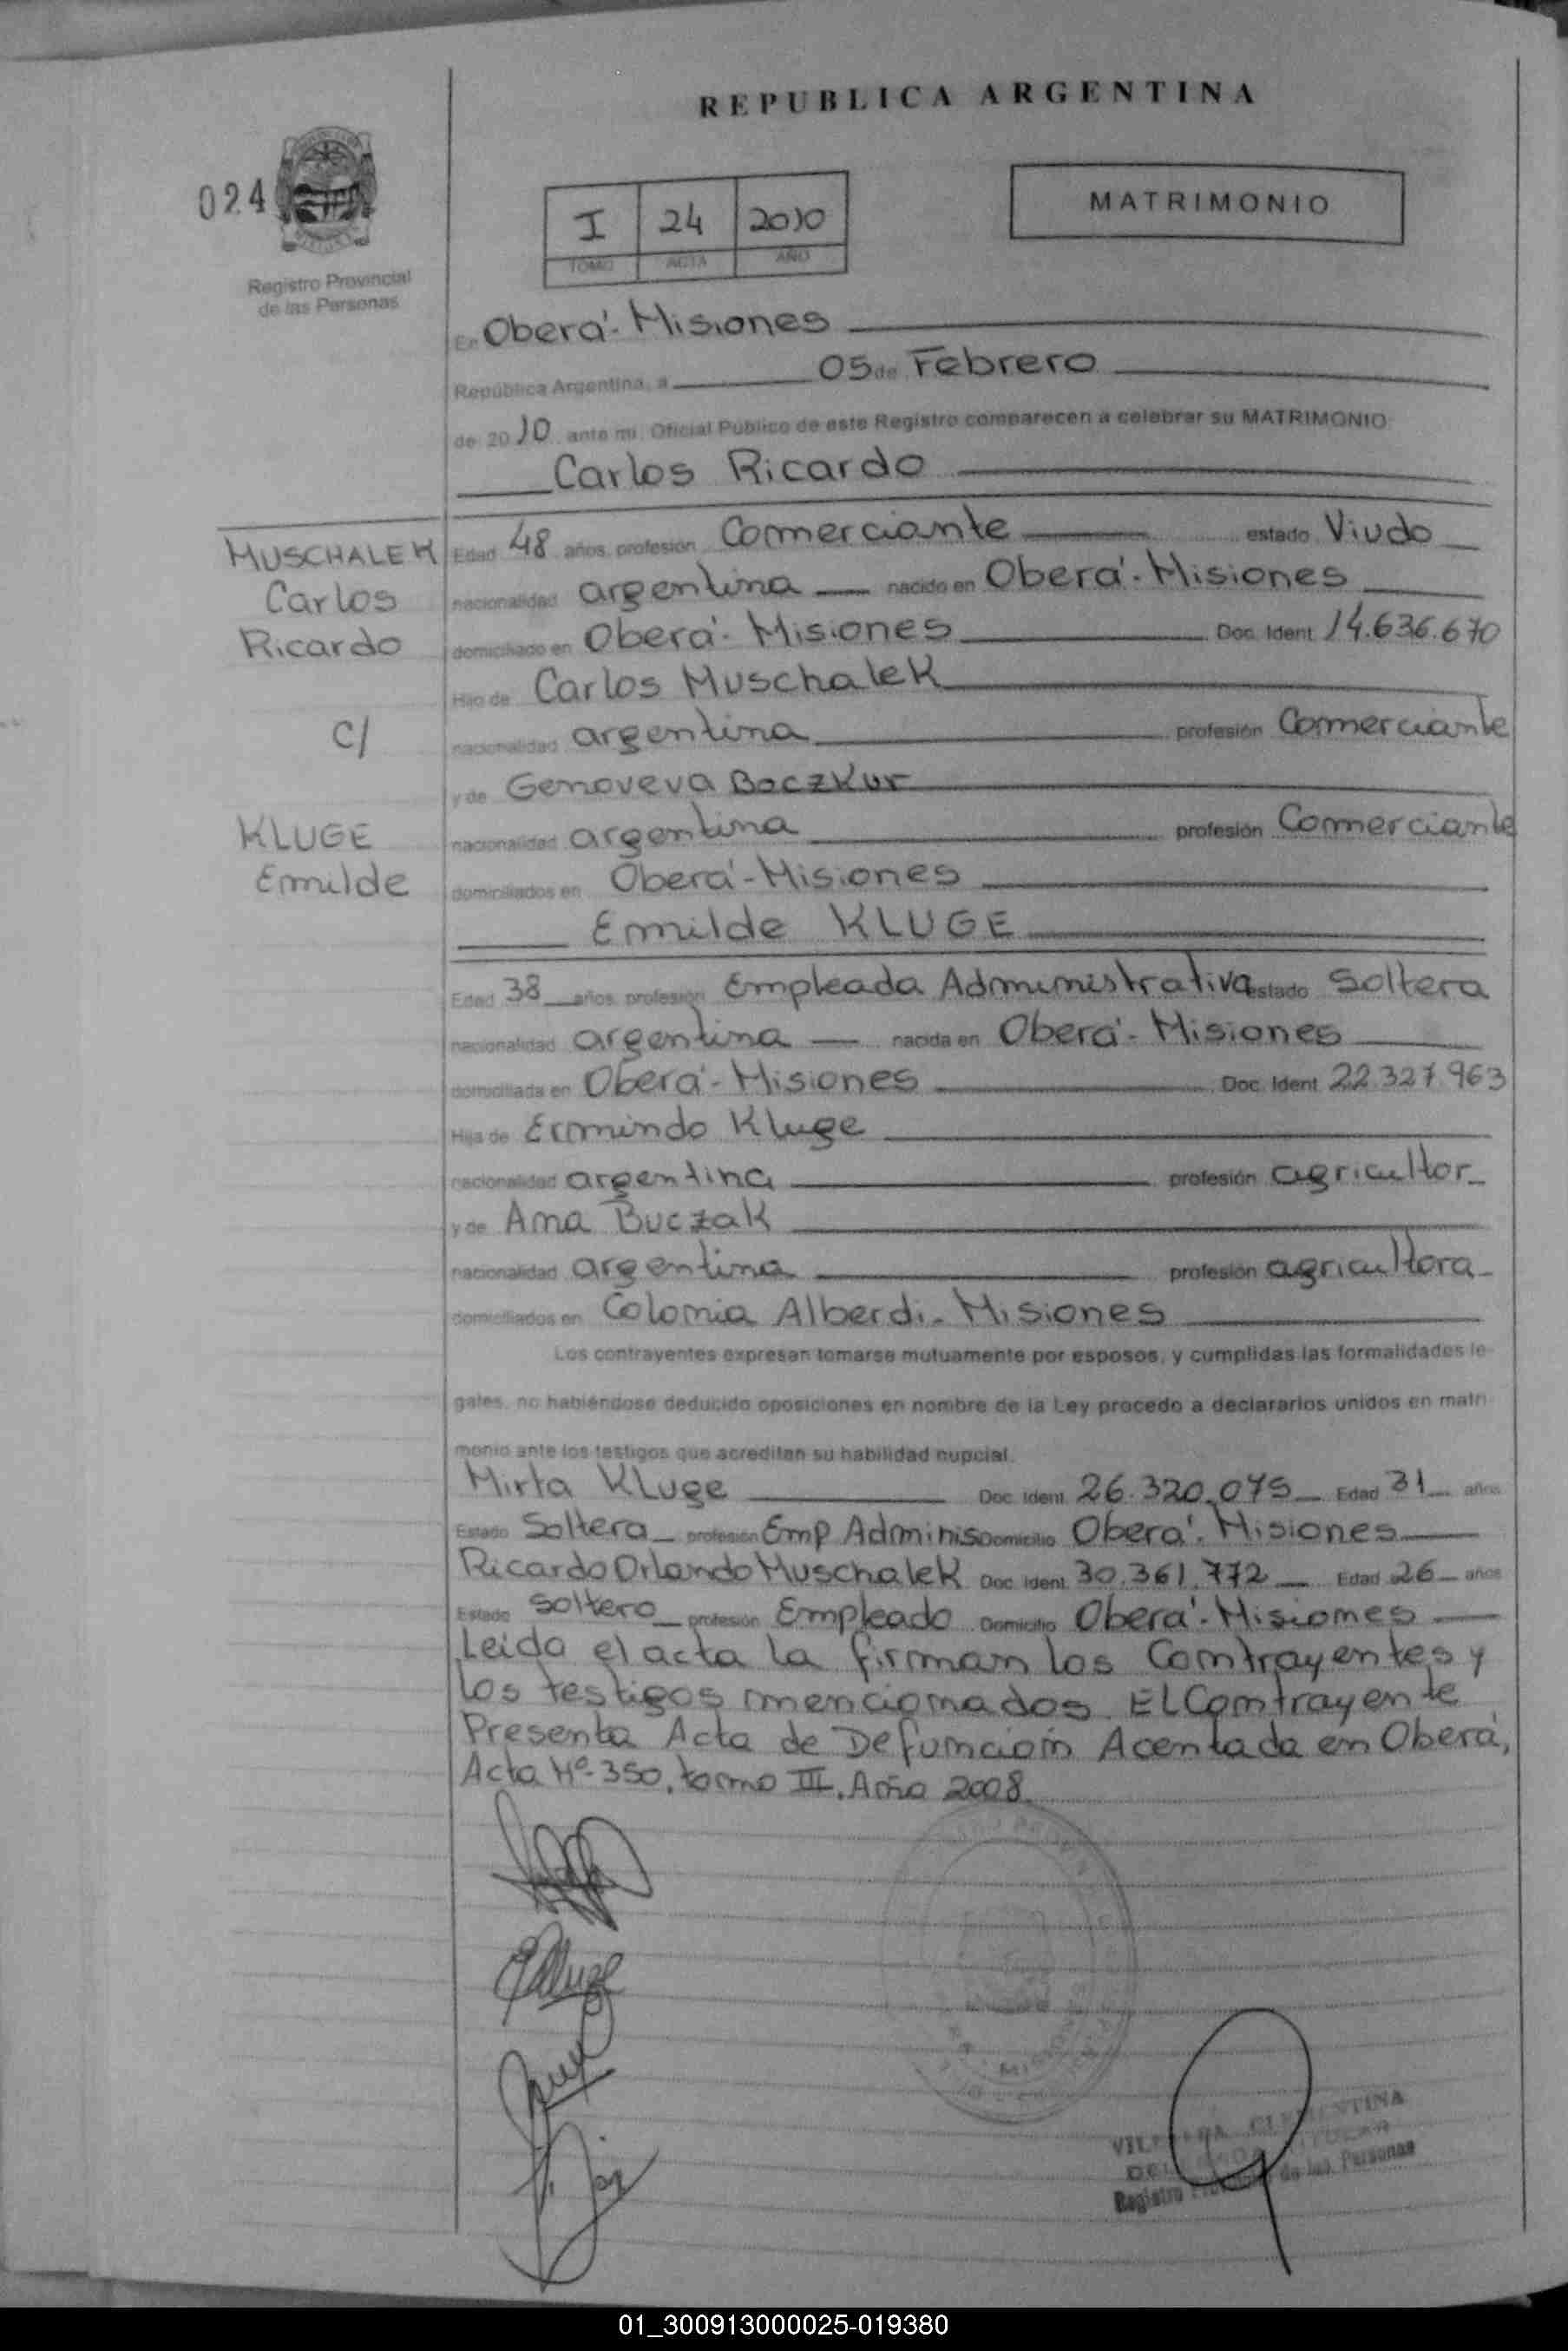 REPUBLICA ARGENTINA
024
I 24 2010
TOMO ACTA AÑO
MATRIMONIO
Registro Provincial
de las Personas
En Oberá - Misiones
República Argentina, a 05 de Febrero
de 2010 ante mi Oficial Público de este Registro comparecen a celebrar su MATRIMONIO:
Carlos Ricardo
MUSCHALEK
Carlos
Ricardo
C/
KLUGE
Emilde
Edad 48 años profesión Comerciante estado Viudo
nacionalidad argentina nacido en Oberá - Misiones
domiciliado en Oberá - Misiones Doc. Ident 14.636.670
Hijo de Carlos Muschalek
nacionalidad argentina profesión Comerciante
y de Genoveva Boczkur
nacionalidad argentina profesión Comerciante
domiciliados en Oberá - Misiones
Emilde KLUGE
Edad 38 años profesión Empleada Administrativa estado Soltera
nacionalidad argentina nacida en Oberá - Misiones
domiciliada en Oberá - Misiones Doc. Ident 22.327.963
Hija de Ermindo Kluge
nacionalidad argentina profesión agricultor
y de Ana Buczak
nacionalidad argentina profesión agricultora
domiciliados en Colonia Alberdi - Misiones
Los contrayentes expresan tomarse mutuamente por esposos, y cumplidas las formalidades le-
gales, no habiéndose deducido oposiciones en nombre de la Ley procedo a declararlos unidos en matri-
monio ante los testigos que acreditan su habilidad nupcial.
Mirta Kluge Doc. Ident. 26.320.075 Edad 31 años
Estado Soltera profesión Emp Adminis Domicilio Oberá - Misiones
Ricardo Orlando Muschalek Doc. Ident. 30.361.772 Edad 26 años
Estado Soltero profesión Empleado Domicilio Oberá - Misiones
Leida el acta la firman los Contrayentes y
los testigos mencionados. El Contrayente
Presenta Acta de Defunción Acentada en Oberá,
Acta Nº 350, tomo III, Año 2008.
EKluge
CLEMENTINA
Registro Provincial de las Personas
01_300913000025-019380